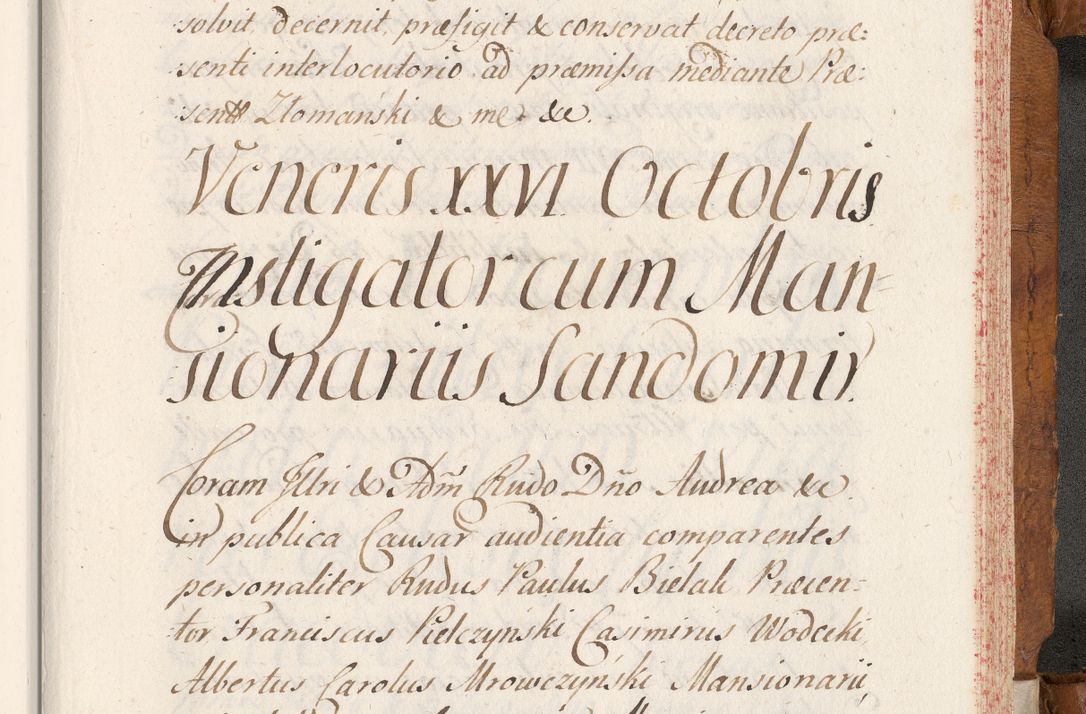 solvit, decernit, præfigit & conservat decreto præ:
senti interlocutorio ad præmissa mediante Præ:
sentt Złomański & me &c.
Veneris XXVI Octobris
Instigator cum Man-
sionariis Sandomir.
Coram Illri & Adm̃ Rndo Dño Andrea &c
in publica Causar audientia comparentes
personaliter Rndus Paulus Bielak Præcen-
tor Franciscus Pielczyński Casimirus Wodecki
Albertus Carolus Mrowczyński Mansionarii